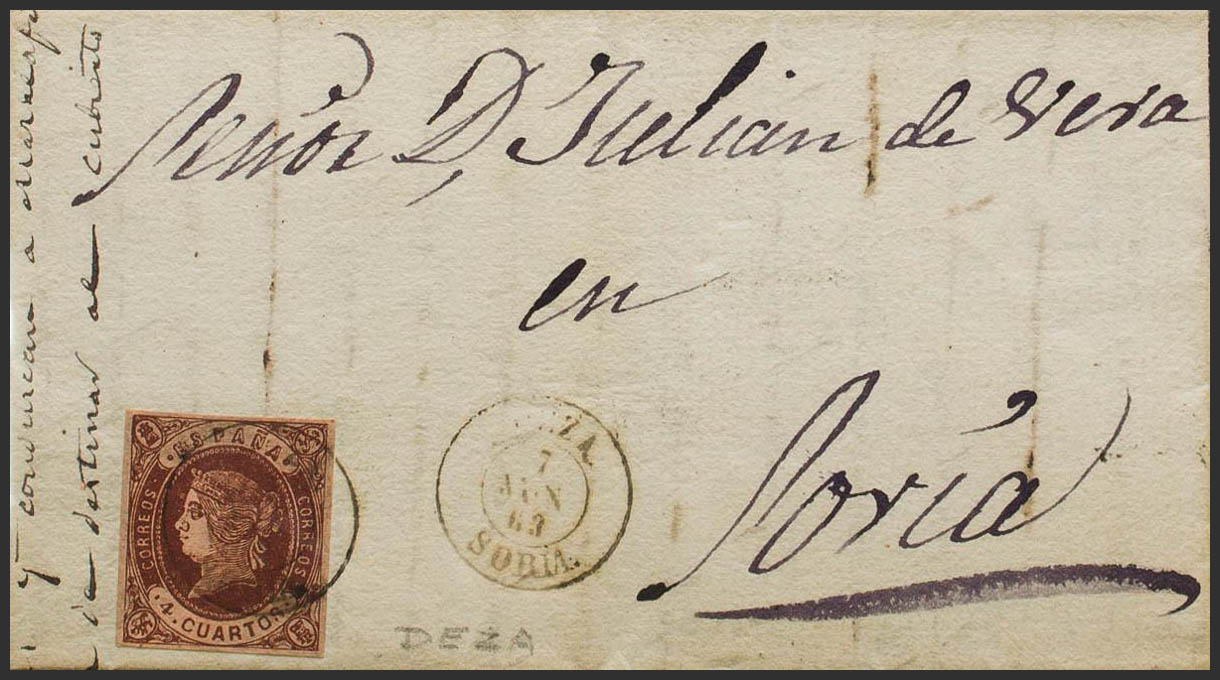 Señor D, Julian de Vera
en
Soria
ZA.
7
JUN
63
SORIA.
ESPAÑA
CORREOS
CORREOS
4. CUARTOS.
DEZA
y
a
destinar al cubierto